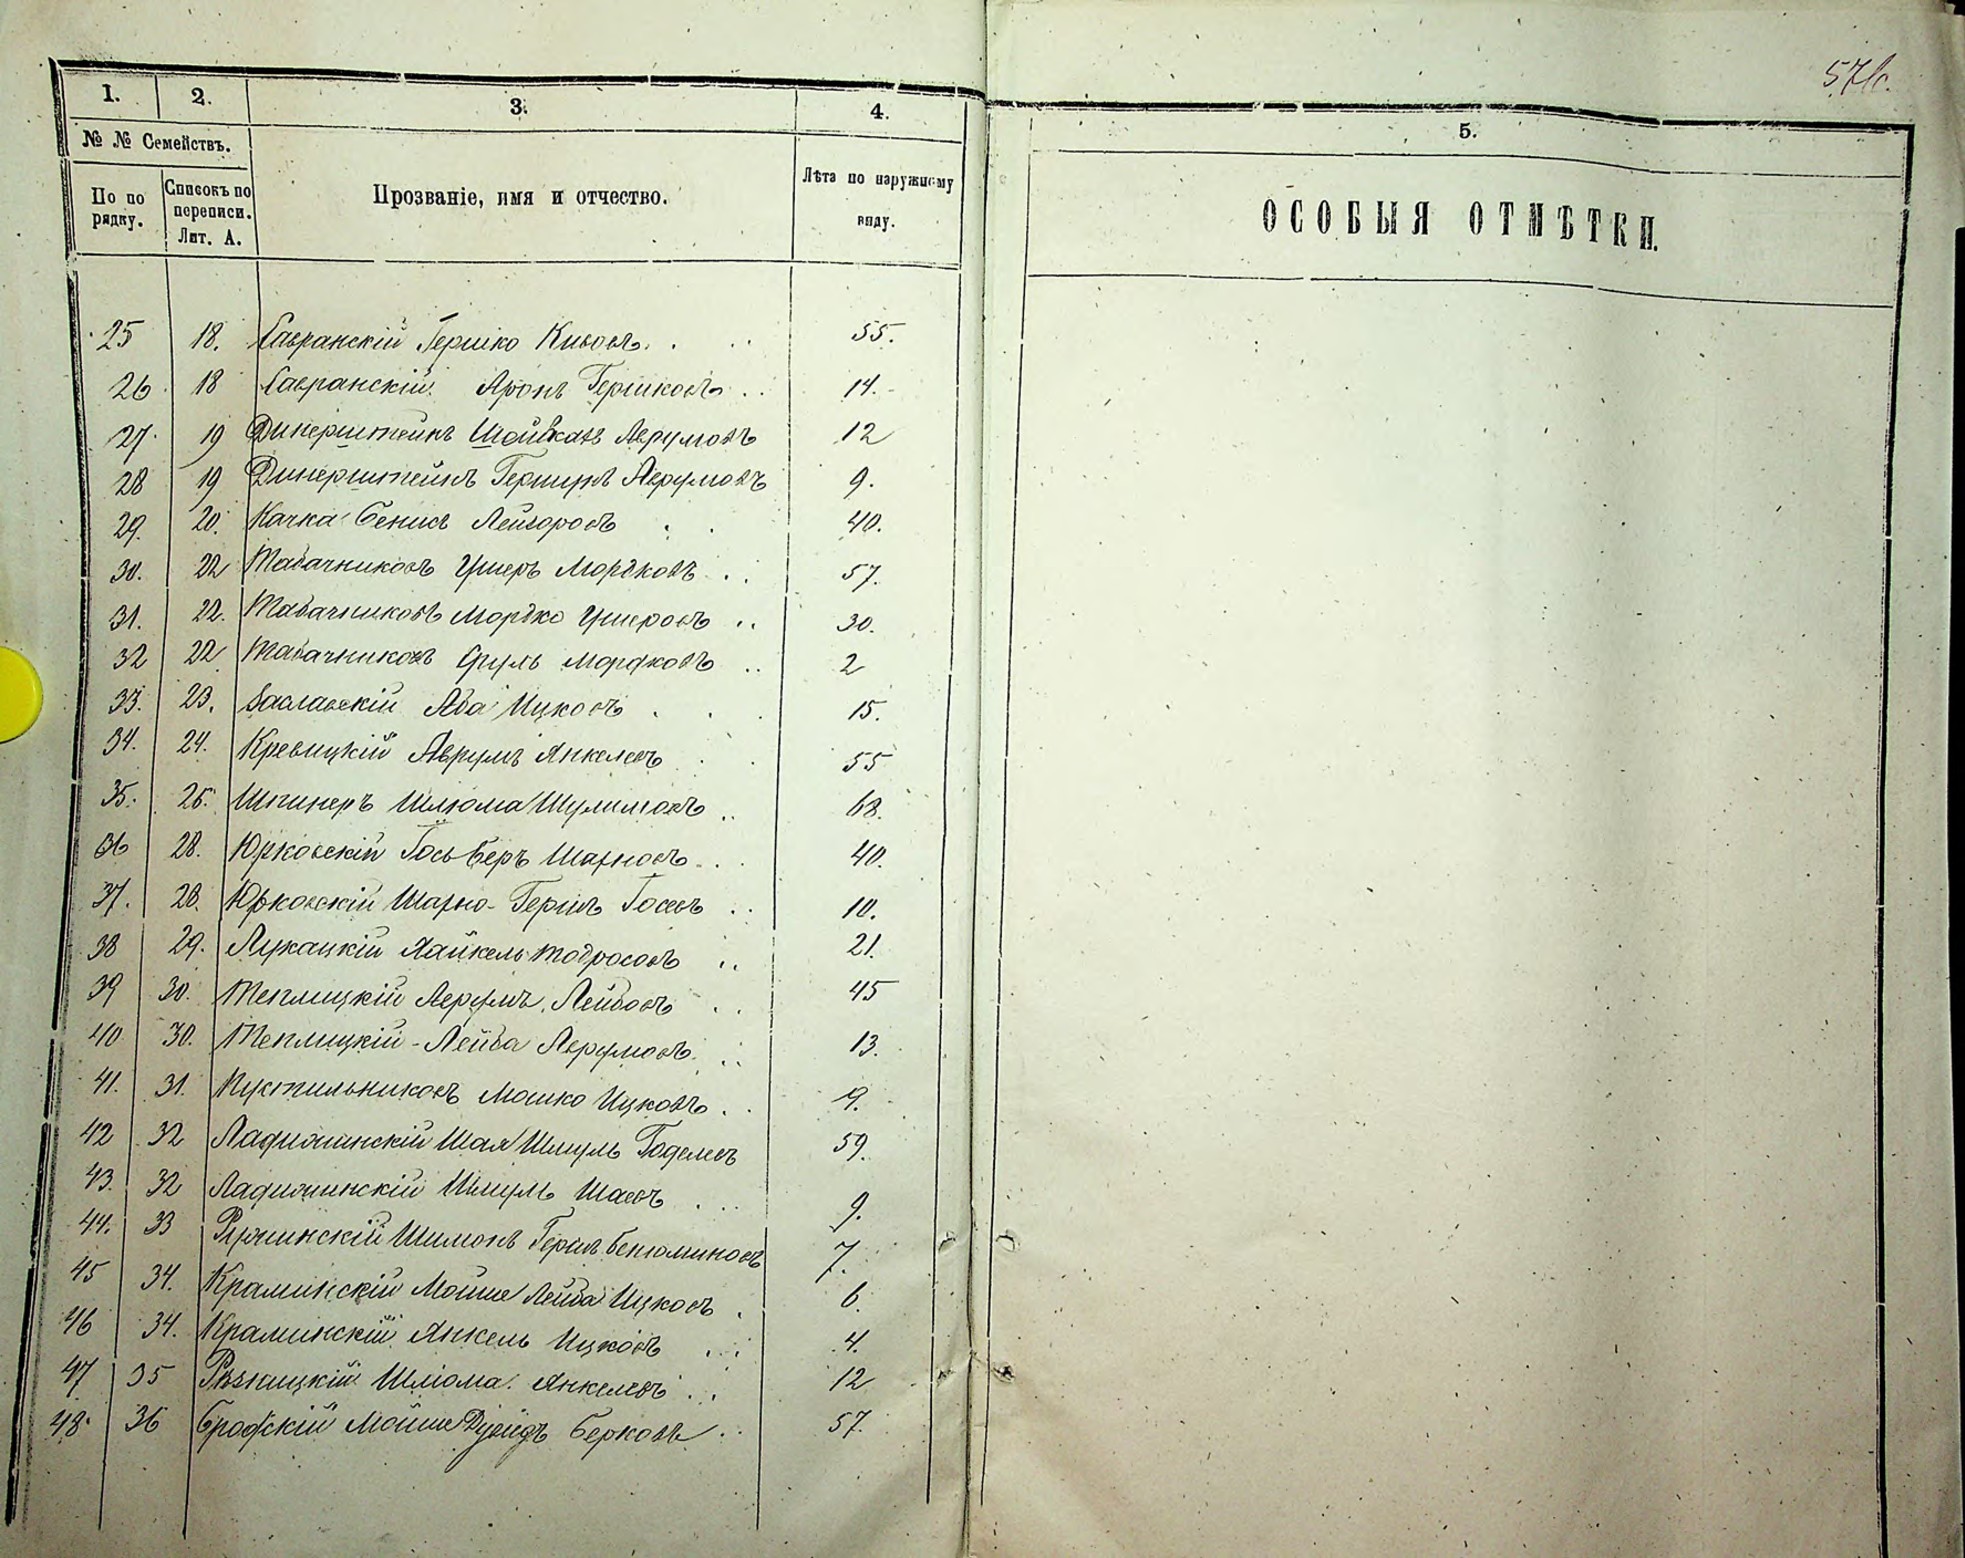 57/с.
1. 2. 3. 4. 5.
№ № Семействъ.
По порядку. Списокъ по переписи. Лит. А. Прозваніе, имя и отчество. Лѣта по наружному виду. ОСОБЫЯ ОТМѢТКИ.
25 18. Савранскій Гершко Кивовъ. 55.
26 18 Савранскій Аронъ Гершковъ 14.
27. 19 Динерштейнъ Аврумовъ 12
28 19 Динерштейнъ Гершунъ Аврумовъ 9.
29. 20. Качка Бенисъ Лейзоровъ 40.
30. 22 Табачниковъ Ушеръ Мордковъ 57.
31. 22. Табачниковъ Мордко Ушеровъ 30.
32 22 Табачниковъ Сруль Мордковъ 2
33. 23. Заславскій Аба Ицковъ 15.
34. 24. Кревицкій Аврумъ Янкелевъ 55
35. 25. Шпинеръ Шлюма Шулимовъ 68.
36 28. Юрковскій Іось Беръ Шарновъ 40.
37. 28. Юрковскій Шарно-Гершъ Іосевъ 10.
38 29. Лукацкій Хайкель Тодросовъ 21.
39 30. Теплицкій Аврумъ Лейбовъ 45
40 30. Теплицкій-Лейба Аврумовъ 13.
41. 31. Пустильниковъ Мошко Ицковъ 9.
42 32 Ладижинскій Шая Шмуль Годелевъ 59.
43. 32 Ладижинскій Шмуль Шаевъ 9.
44. 33 Ружинскій Шимонъ Гершъ Бенюминовъ 7.
45 34. Краминскій Мойше Лейба Ицковъ 6.
46 34. Краминскій Янкель Ицковъ 4.
47 35 Шліома Янкелевъ 12
48. 36 Бродскій Мойше Берковъ 57.